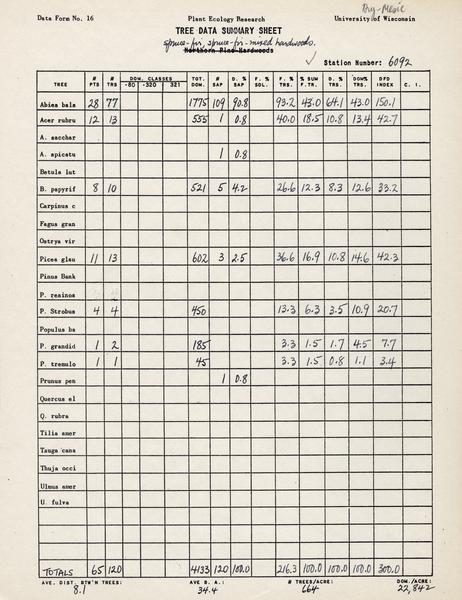 Dry-Mesic
Data Form No. 16 Plant Ecology Research University of Wisconsin
TREE DATA SUMMARY SHEET
spruce-fir, spruce-fir-mixed hardwoods.
Northern Pine-Hardwoods
✓ Station Number: 6092
TREE # PTS # TRS DOM. CLASSES -80 -320 321 TOT. DOM. # SAP D. % SAP F. % SOL. F. % TRS. % SUM F. TR. D. % TRS. DOM% TRS. DFD INDEX C. I.
Abies bals 28 77 1775 109 90.8 93.2 43.0 64.1 43.0 150.1
Acer rubru 12 13 555 1 0.8 40.0 18.5 10.8 13.4 42.7
A. sacchar
A. spicatu 1 0.8
Betula lut
B. papyrif 8 10 521 5 4.2 26.6 12.3 8.3 12.6 33.2
Carpinus c
Fagus gran
Ostrya vir
Picea glau 11 13 602 3 2.5 36.6 16.9 10.8 14.6 42.3
Pinus Bank
P. resinos
P. Strobus 4 4 450 13.3 6.3 3.5 10.9 20.7
Populus ba
P. grandid 1 2 185 3.3 1.5 1.7 4.5 7.7
P. tremulo 1 1 45 3.3 1.5 0.8 1.1 3.4
Prunus pen 1 0.8
Quercus el
Q. rubra
Tilia amer
Tsuga cana
Thuja occi
Ulmus amer
U. fulva
TOTALS 65 120 4133 120 100.0 216.3 100.0 100.0 100.0 300.0
AVE. DIST. BTW'N TREES: AVE B. A.: # TREES/ACRE: DOM./ACRE:
8.1 34.4 664 22,842